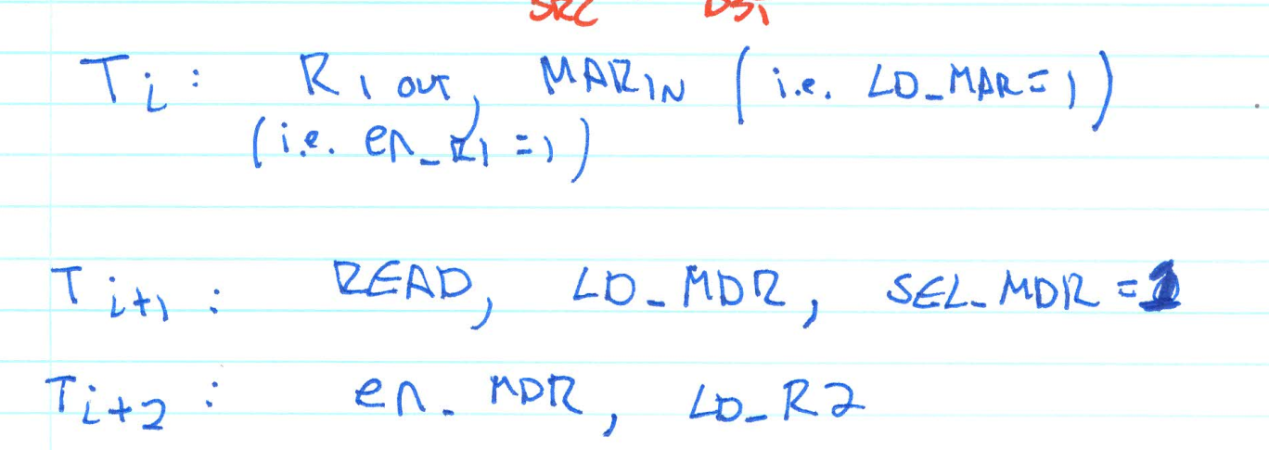 SRC DST
Ti: R1 OUT, MARIN (i.e. LD_MAR=1)
(i.e. en_R1=1)
Ti+1: READ, LD_MDR, SEL_MDR=1
Ti+2: en_MDR, LD_R2